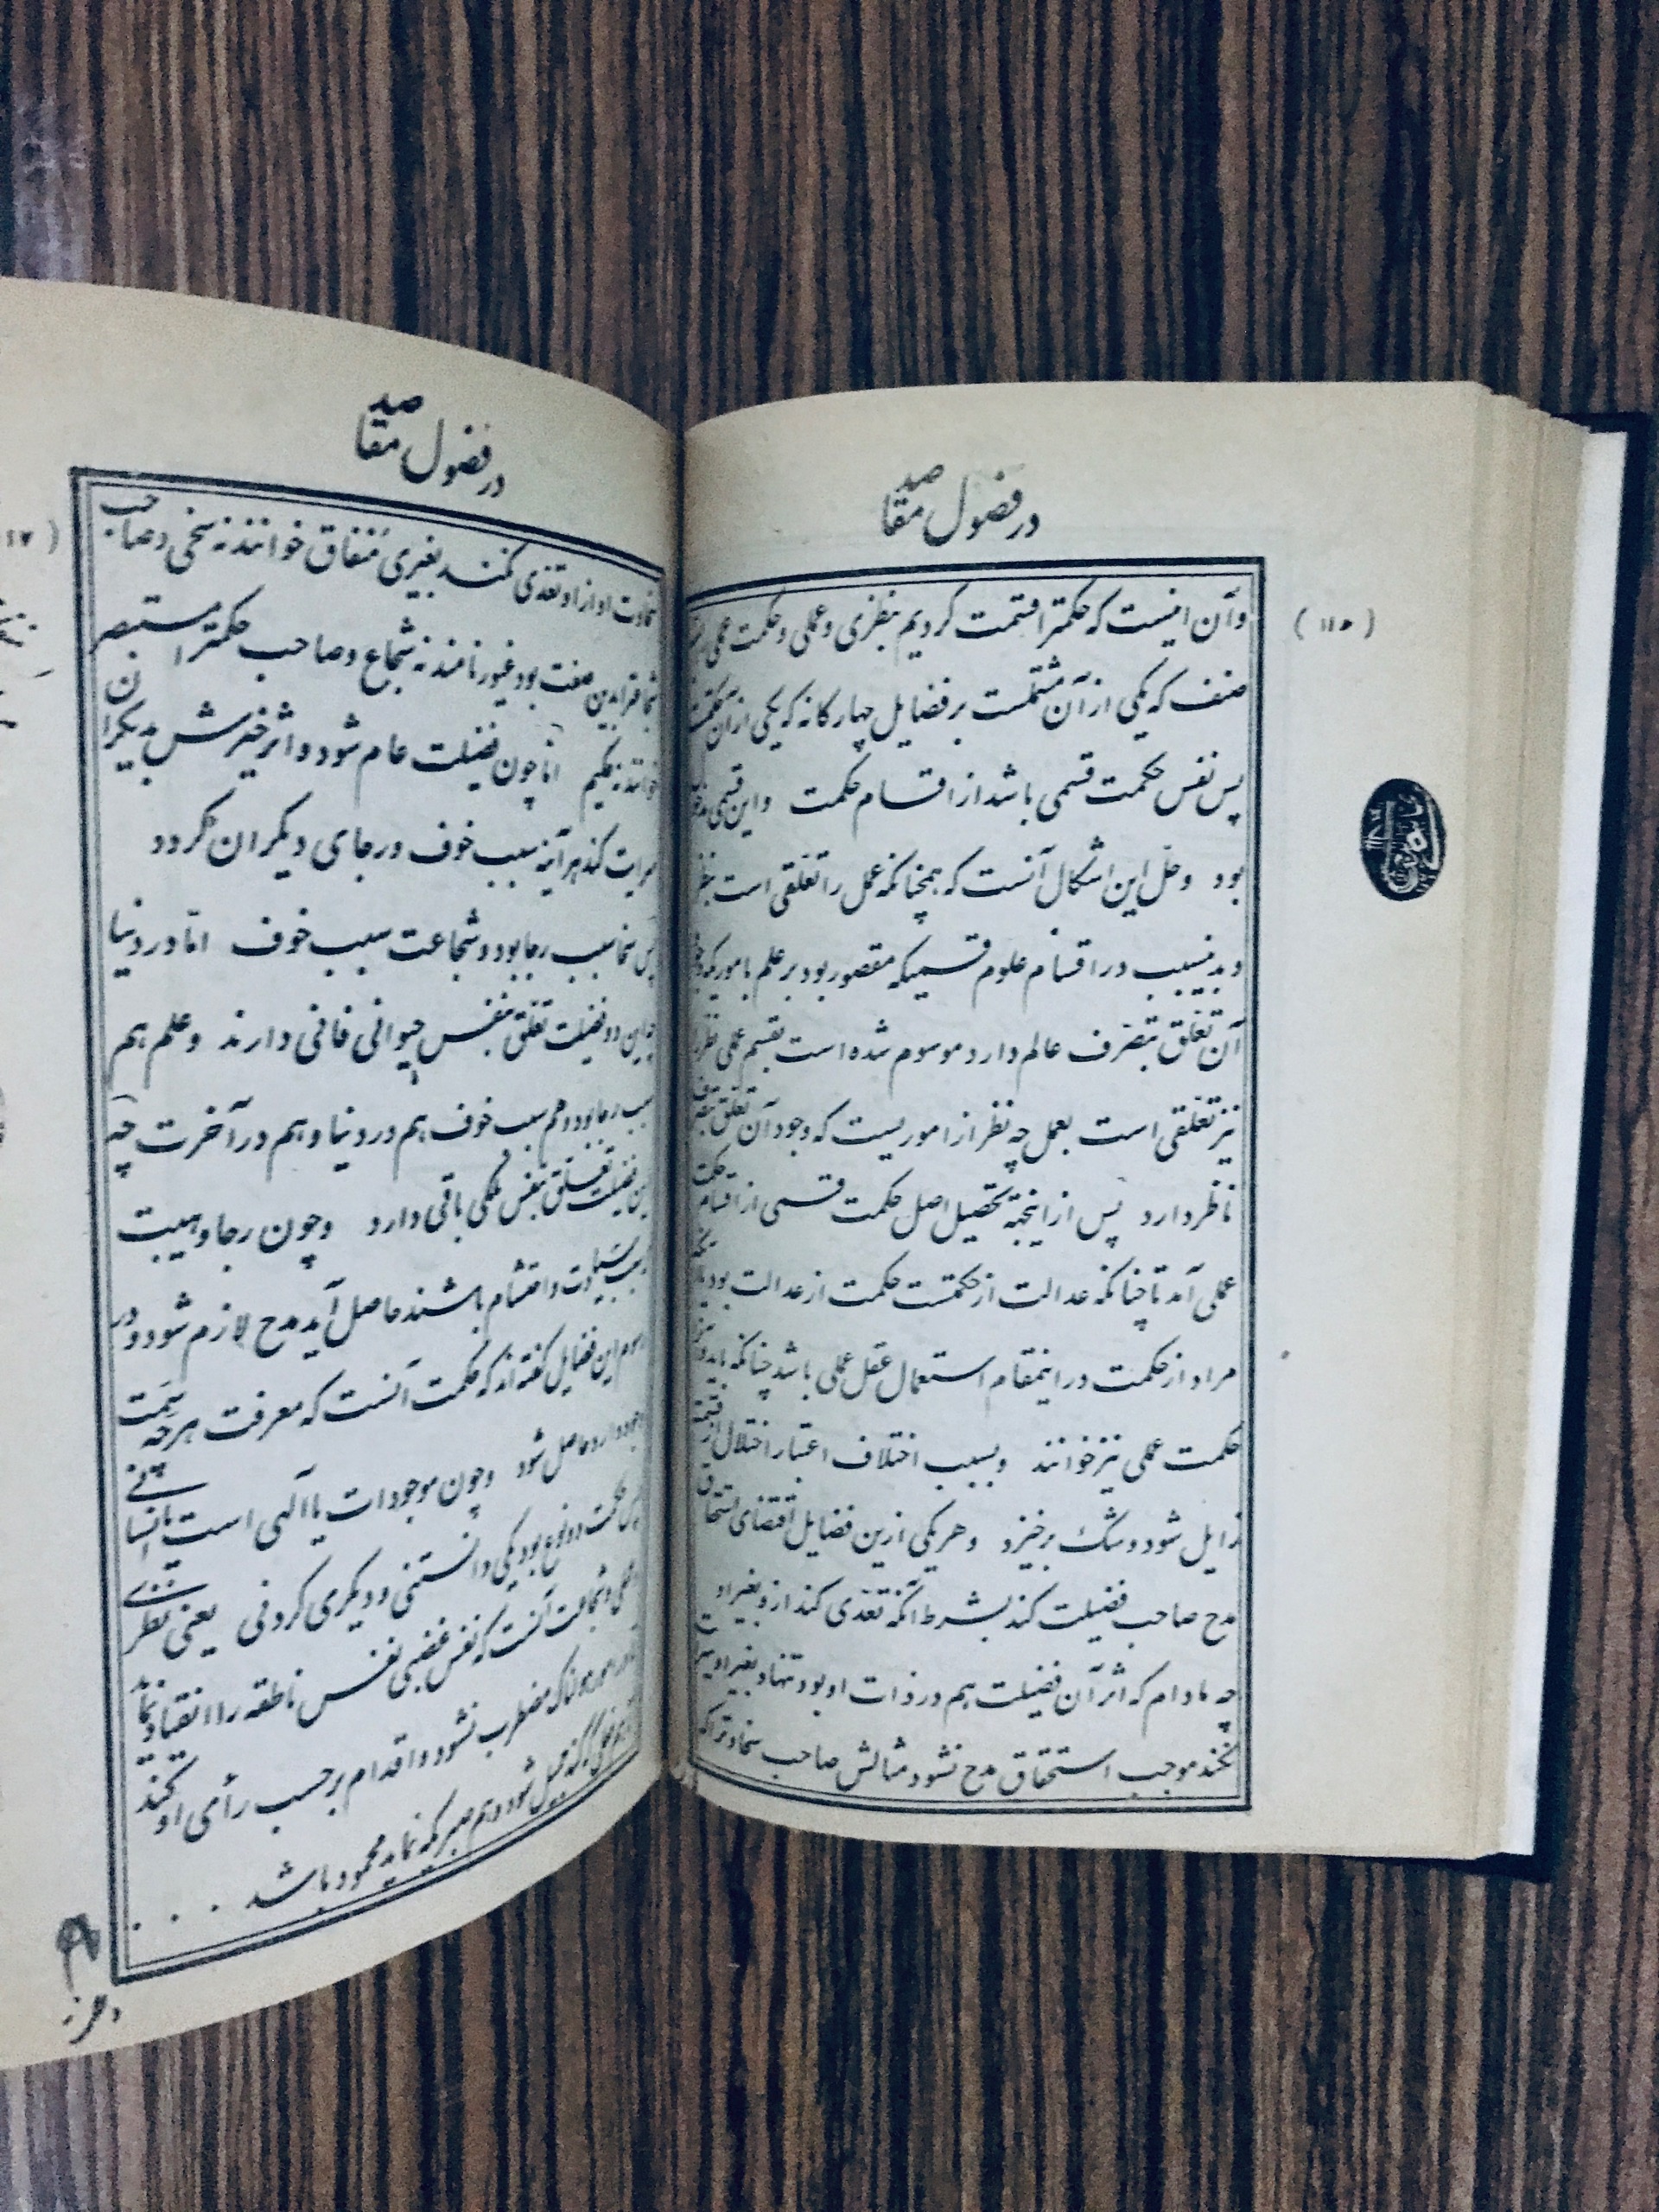 در فصول مقاصد
( ۱۱۵ )
وآن اینست که حکمترا قسمت کردیم بنظری و عملی و حکمت عملی
صنف که یکی از آن مشتملست بر فضایل چهارکانه که یکی ازآن حکمتست
پس نفس حکمت قسمی باشد از اقسام حکمت واین قسمی
بود وحل این اشکال آنست که همچنانکه عمل را تعلقی است بنظر
و بدینسبب در اقسام علوم قسمیکه مقصور بود بر علم بامور یکه وجود
آن تعلق بتصرف عالم دارد موسوم شده است بقسم عملی نظر را
نیز تعلقی است بعمل چه نظر از اموریست که وجود آن تعلق بتصرف
ناظر دارد پس از اینجهة تحصیل اصل حکمت قسمی از اقسام حکمت
عملی آمد تا چنانکه عدالت از حکمتست حکمت از عدالت بود
مراد از حکمت در اینمقام استعمال عقل عملی باشد چنانکه باید
حکمت عملی نیز خوانند و بسبب اختلاف اعتبار اختلال از قسمت
زایل شود و شک برخیزد و هر یکی ازین فضایل اقتضای استحقاق
مدح صاحب فضیلت کند بشرط آنکه تعدی کند ازو بغیر او
چه مادام که اثر آن فضیلت هم در ذات او بود تنها و بغیر او سرایت
نکند موجب استحقاق مدح نشود مثالش صاحب سخاوترا که
در فصول مقاصد
سخاوت او از او تعدی نکند بغیری منفاق خوانند نه سخی و صاحب
شجاعترا بدین صفت بود غیور نامند نه شجاع و صاحب حکمترا مستبصر
خوانند نه حکیم اما چون فضیلت عام شود و اثر خیرش بدیکران
سرایت کند هرآینه سبب خوف و رجای دیکران کردد
پس سخا سبب رجا بود و شجاعت سبب خوف اما در دنیا
چه این دو فضیلت تعلق بنفس حیوانی فانی دارند و علم هم
سبب رجا بود و هم سبب خوف هم در دنیا و هم در آخرت چه
این فضیلت تعلق بنفس ملکی باقی دارد وچون رجا و هیبت
سبب سیادت و احتشام باشند حاصل آید مدح لازم شود و در
رسوم این فضایل کفته‌اند که حکمت آنست که معرفت هر چه سمت
وجود دارد حاصل شود وچون موجودات یا آلهی است یا انسانی
پس حکمت دو نوع بود یکی دانستنی و دیکری کردنی یعنی نظری
و عملی و شجاعت آنست که نفس غضبی نفس ناطقه را انقیاد نماید
تا در امور هولناک مضطرب نشود و اقدام برحسب رأی او کند
تا هم فعلی که کند جمیل شود و هم صبر که نماید محمود باشد . . .